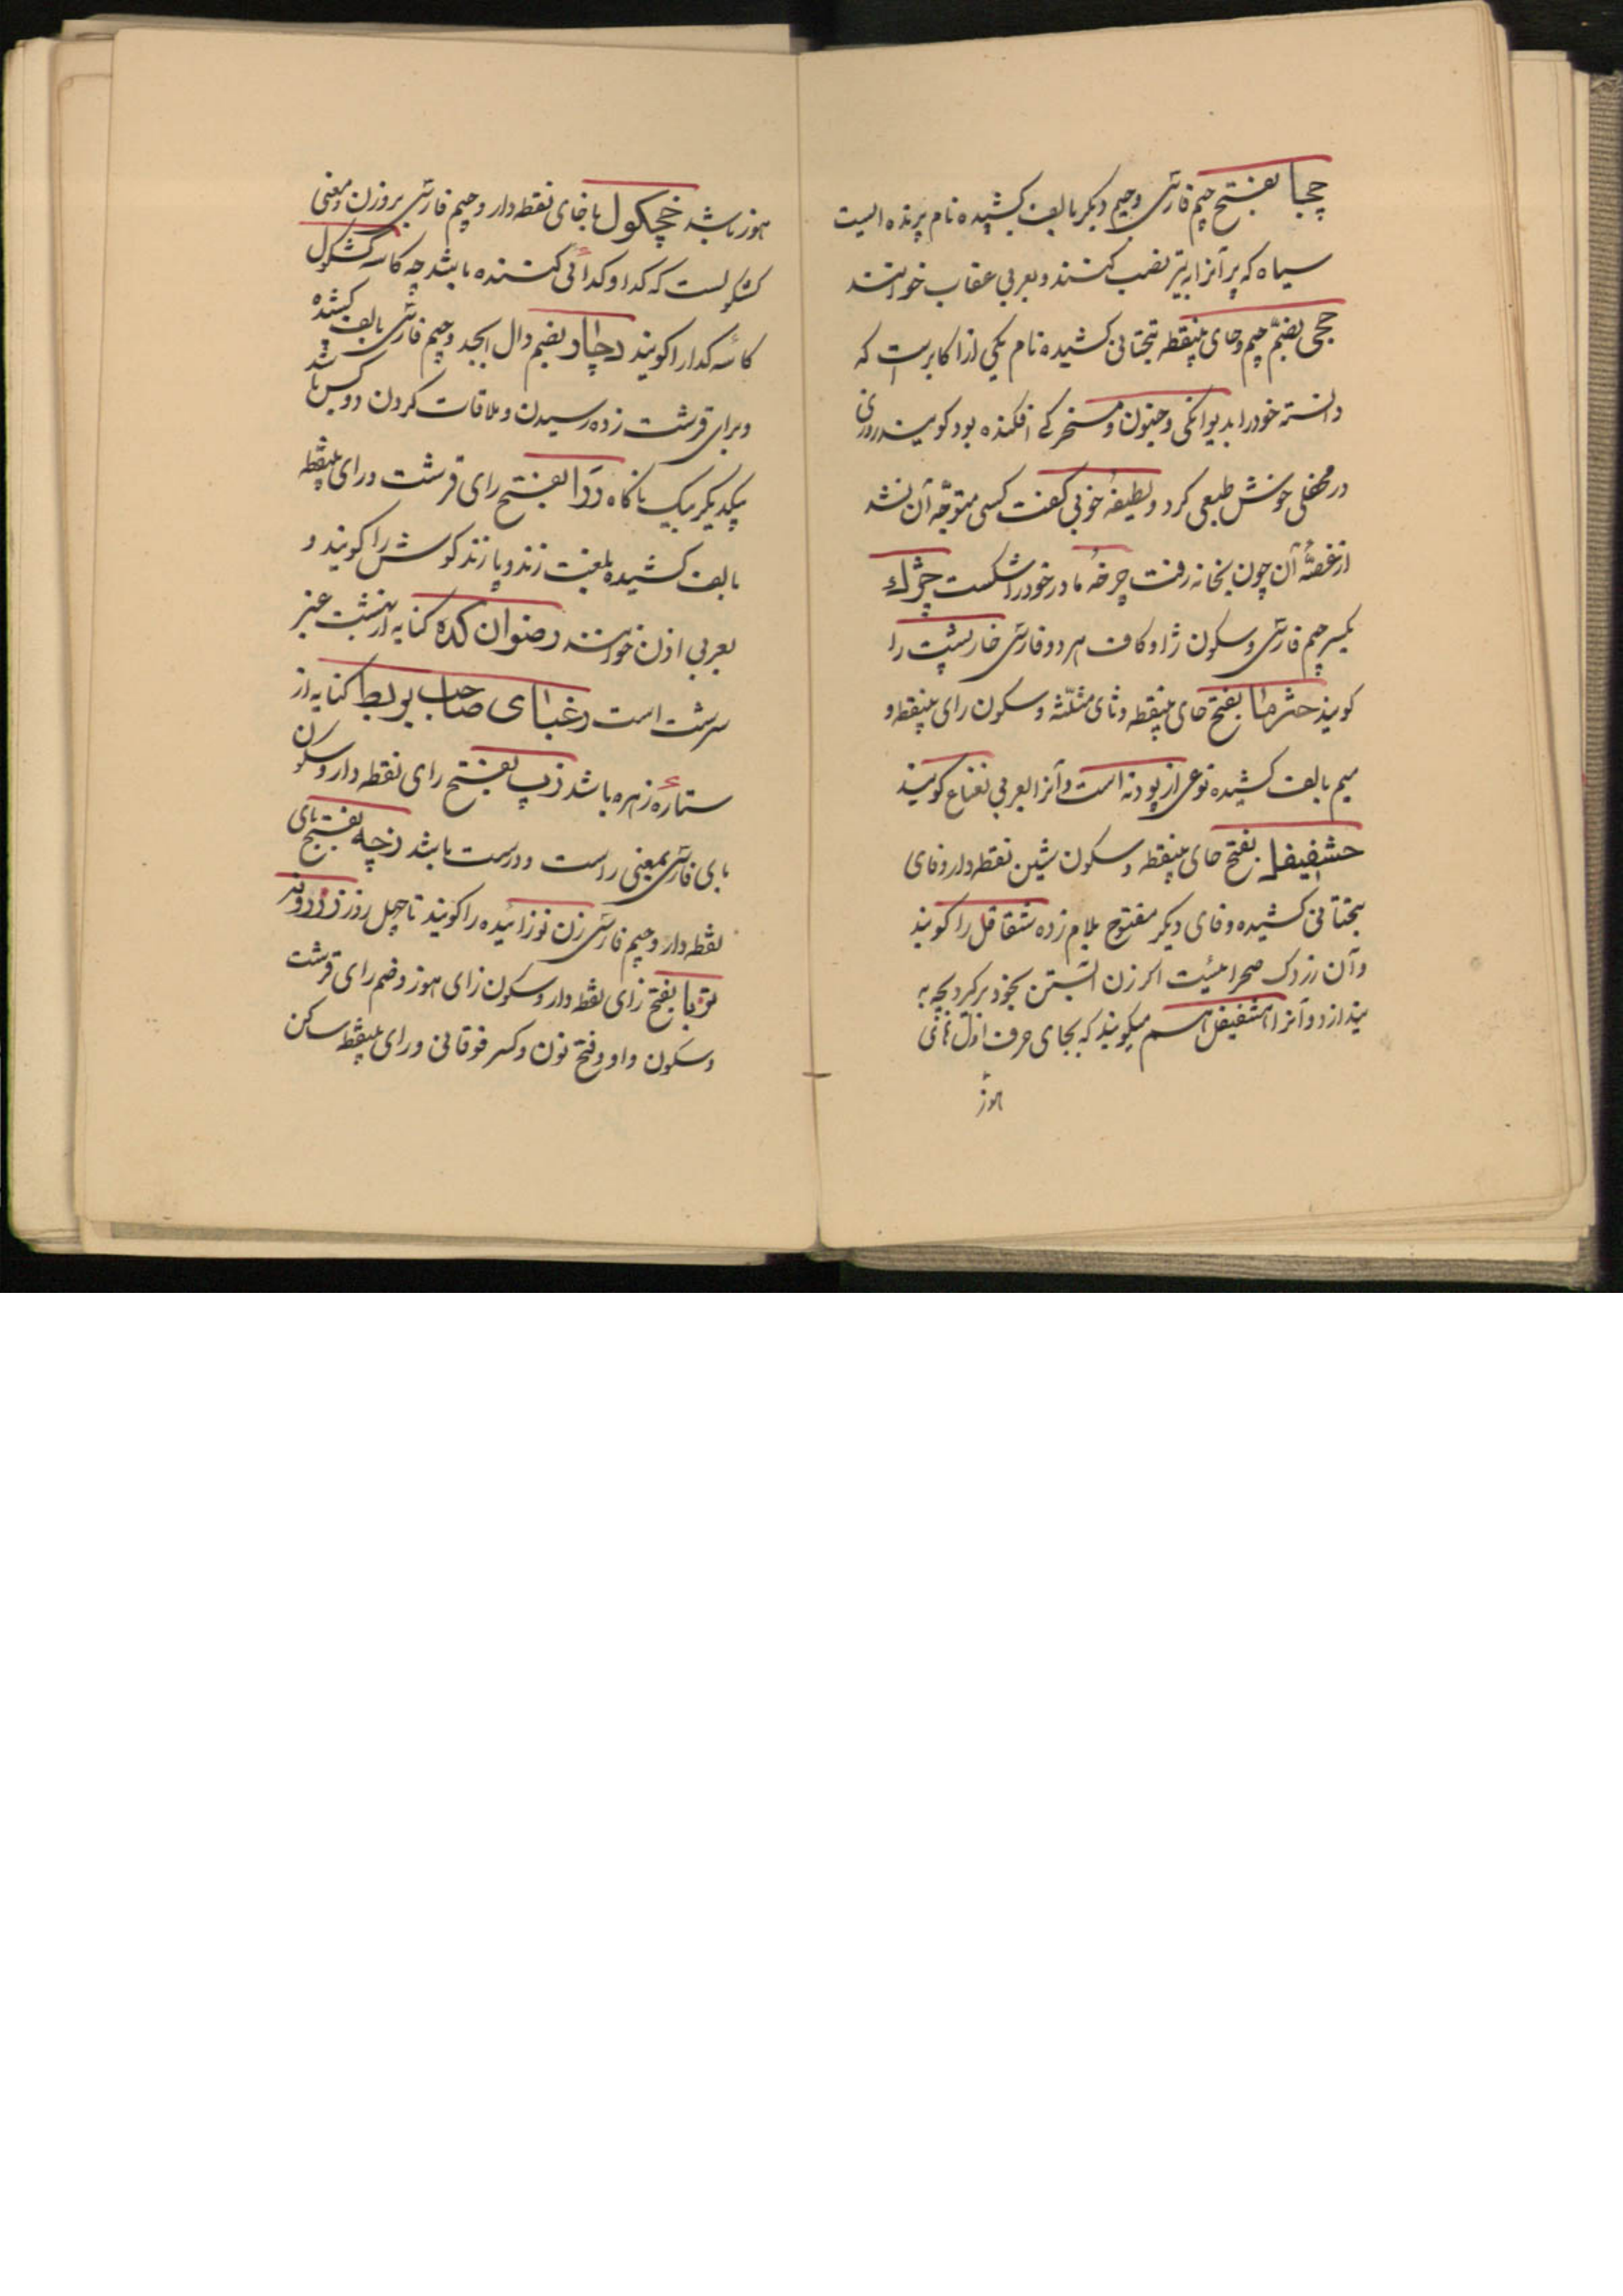 چچا بفتح جیم فارسی و جیم دیگر بالف کشیده نام پرنده ایست
سیاه که پر آنرا به تیر نصب کنند و بعربی عقاب خوانند
جحی بضم جیم و حای بینقطه بتحتانی کشیده نام یکی از اکابرست که
دانسته خود را بدیوانکی و جنون و مسخرکی افکنده بود کویند روزی
در محفلی خوش طبعی کرد و لطیفهٔ خوبی کفت کسی متوجّه آن نشد
از غصّهٔ آن چون بخانه رفت چرخهٔ مادر خود را شکست چژک
بکسر جیم فارسی و سکون ژا و کاف هر دو فارسی خارپشت را
کویند حثرما بفتح حای بینقطه و ثای مثلّثه و سکون رای بینقطه و
میم بالف کشیده نوعی از پودنه است و آنرا بعربی نعناع کویند
حشفیفل بفتح حای بینقطه و سکون شین نقطه دار و فای
بتحتانی کشیده و فای دیکر مفتوح بلام زده شقاقل را کویند
و آن زردک صحرائیست اکر زن آبستن بخود برکیرد بچه به
بیندازد و آنرا هشفیفل هم میکویند که بجای حرف اول های
هوز
هوز باشد خچکول با خای نقطه دار و جیم فارسی بر وزن و معنی
کشکولست که کدا و کدائی کننده باشد چه کاسه کشکول
کاسه کدا را کویند دچار بضم دال ابجد و جیم فارسی بالف کشیده
و برای قرشت زده رسیدن و ملاقات کردن دو کس باشد
بیکدیکر بیک ناکاه ردا بفتح رای قرشت و رای بینقطه
بالف کشیده بلغت زند و پازند کوش را کویند و
بعربی اذن خوانند رضوان کده کنایه از بهشت عنبر
سرشت است رعنای صاحب بربط کنایه از
ستارهٔ زهره باشد زپ بفتح زای نقطه دار و سکون
بای فارسی بمعنی راست و درست باشد زچه بفتح زای
نقطه دار و جیم فارسی زن نوزائیده را کویند تا چهل روز
بفتح زای نقطه دار و سکون زای هوز و ضم رای قرشت
و سکون واو و فتح نون و کسر فوقانی و رای بینقطه ساکن